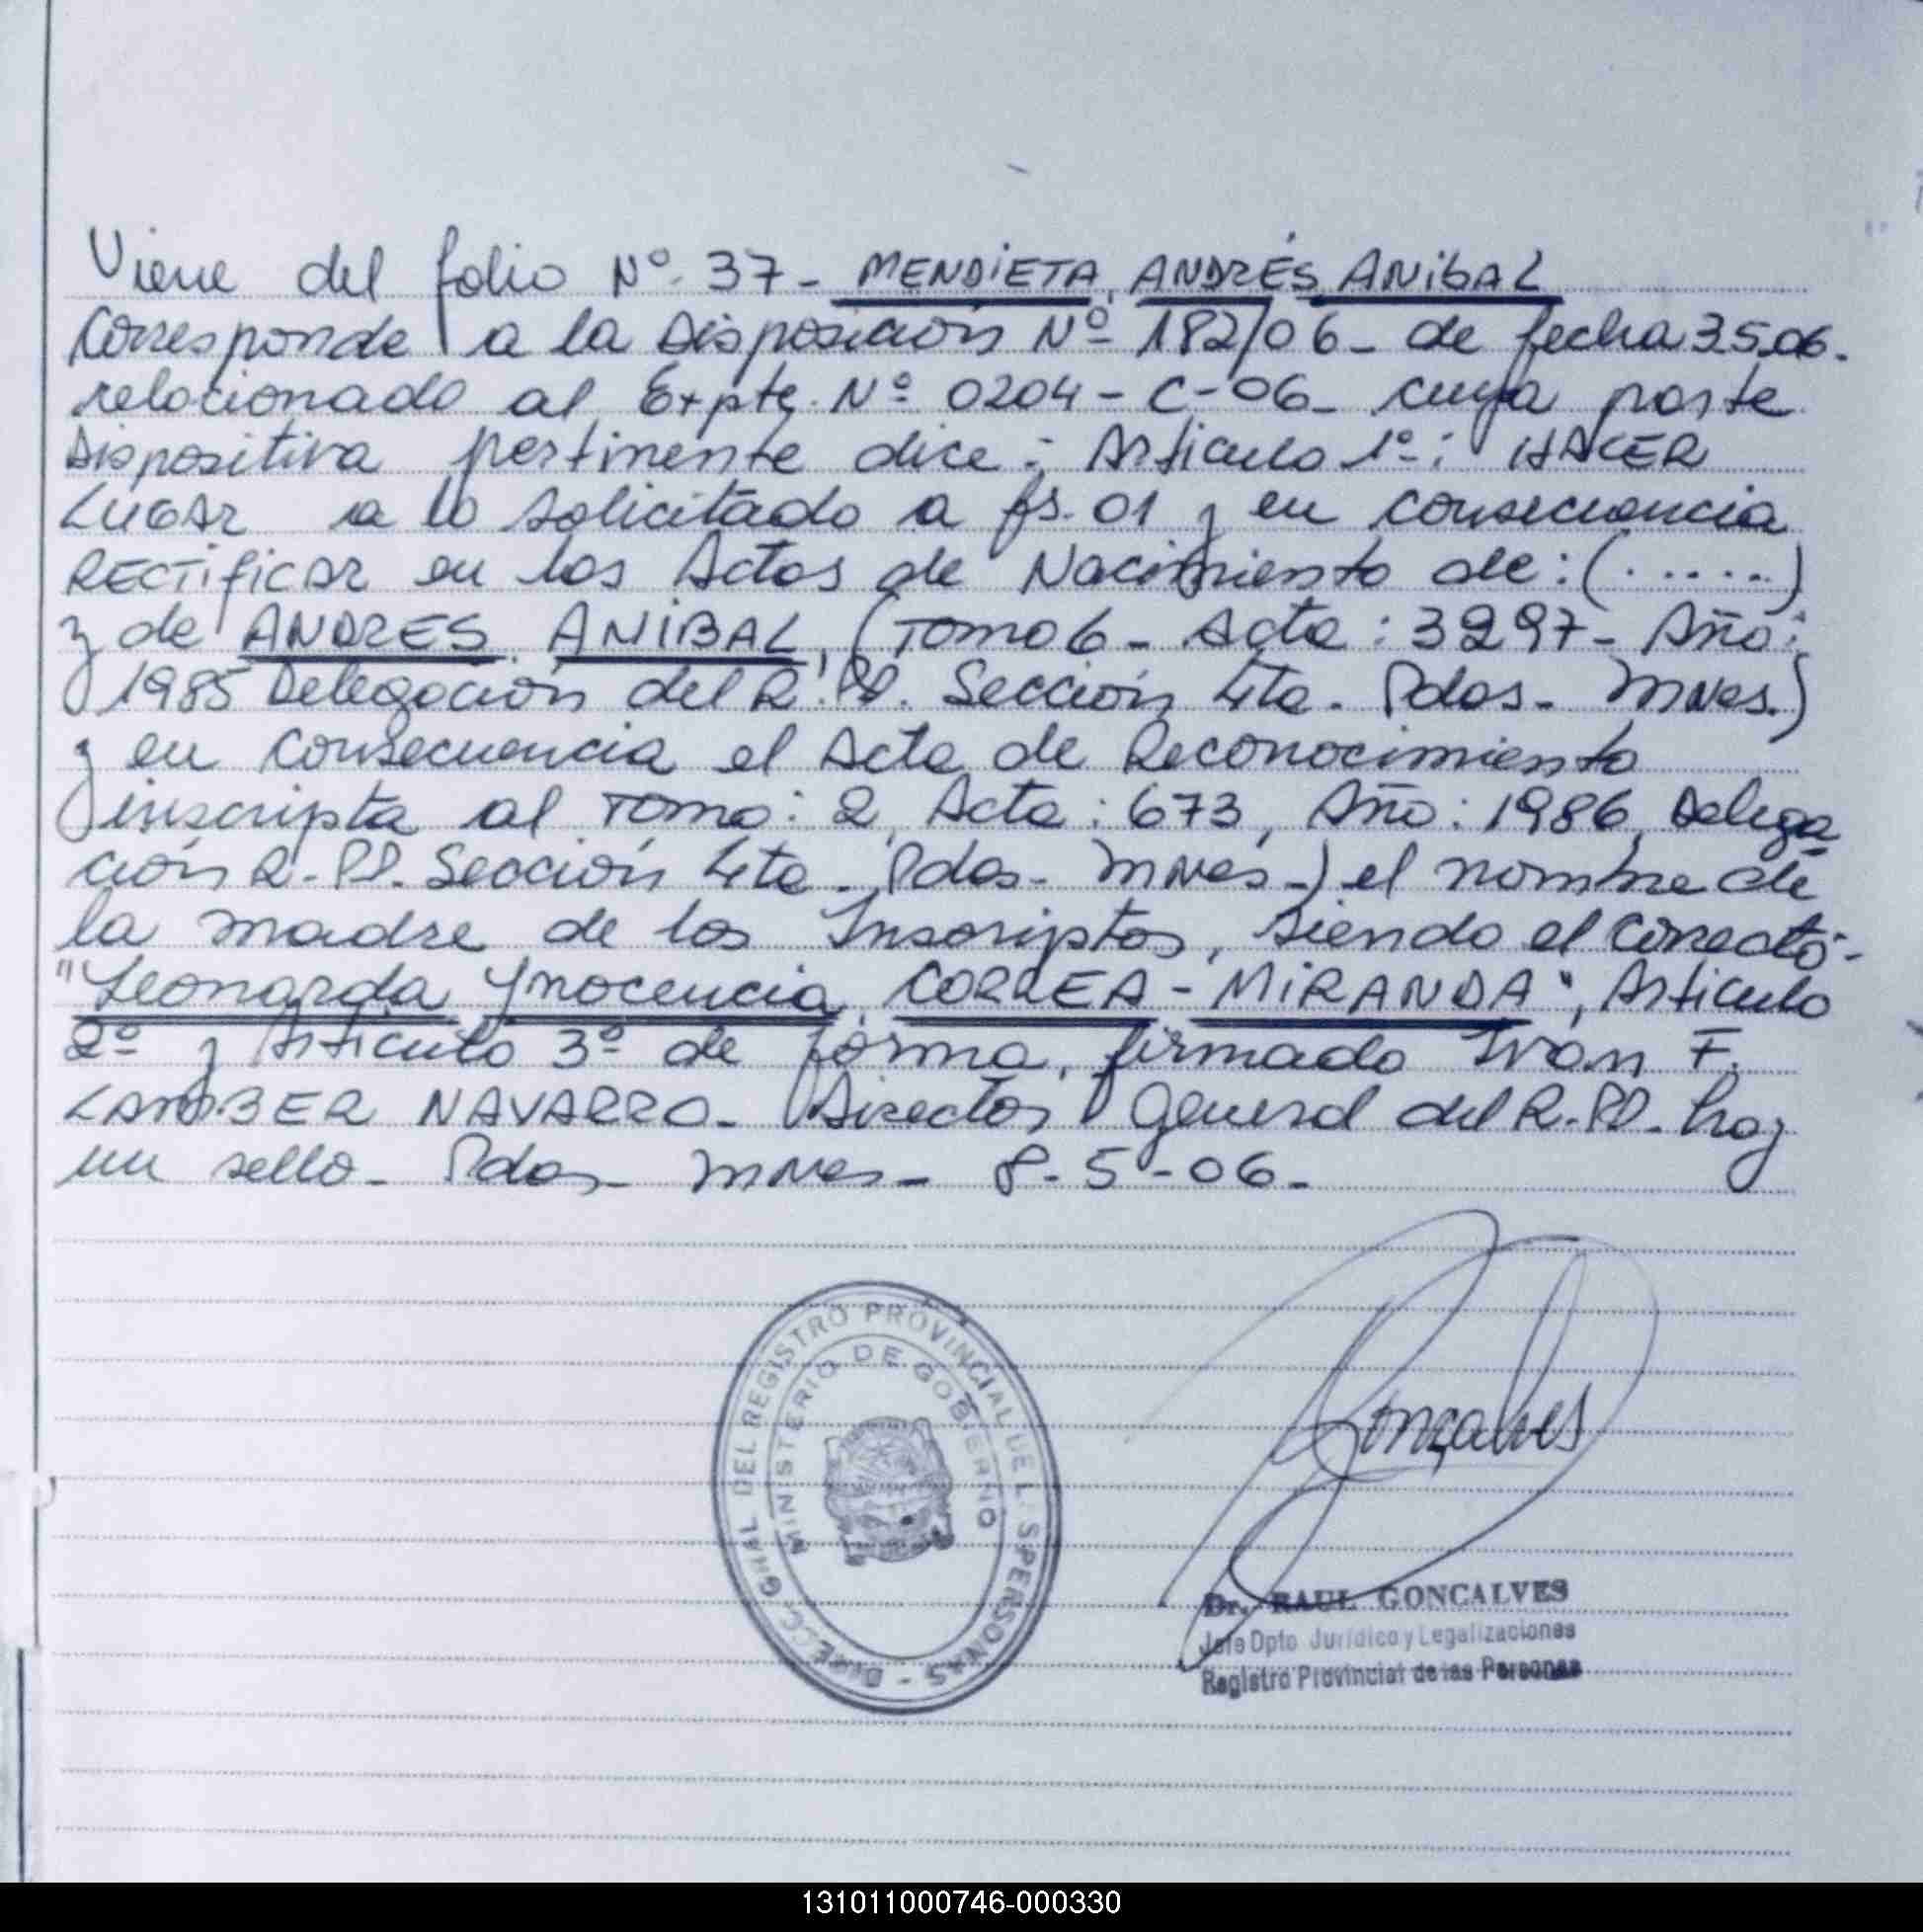 Viene del folio Nº 37- MENDIETA, ANDRÉS ANIBAL
Corresponde a la Disposición Nº 182/06- de fecha 3.5.06.
relacionado al Expte. Nº 0204-C-06- cuya parte
Dispositiva pertinente dice: Articulo 1º: HACER
LUGAR a lo solicitado a fs. 01 y en consecuencia
RECTIFICAR en las Actas de Nacimiento de: (......)
y de ANDRES ANIBAL, (Tomo 6- Acta: 3297- Año:
1985 Delegación del R.PP. Sección 4ta. Pdas- MNes.)
y en consecuencia el Acta de Reconocimiento
inscripta al Tomo: 2, Acta: 673, Año: 1986, Delega
ción R.PP. Sección 4ta- Pdas- MNes-) el nombre de
la madre de los Inscriptos, siendo el correcto-
"Leonarda Ynocencia CORREA-MIRANDA", Articulo
2º y Articulo 3º de forma, firmado Ivan F.
LAMBER NAVARRO- Director General del R.PP- hay
un sello- Pdas- MNes- 8-5-06-
DIRECC. GRAL DEL REGISTRO PROVINCIAL DE LAS PERSONAS -
MINISTERIO DE GOBIERNO
Gonçalves
Dr. RAUL GONCALVES
Jefe Dpto Jurídico y Legalizaciones
Registro Provincial de las Personas
131011000746-000330